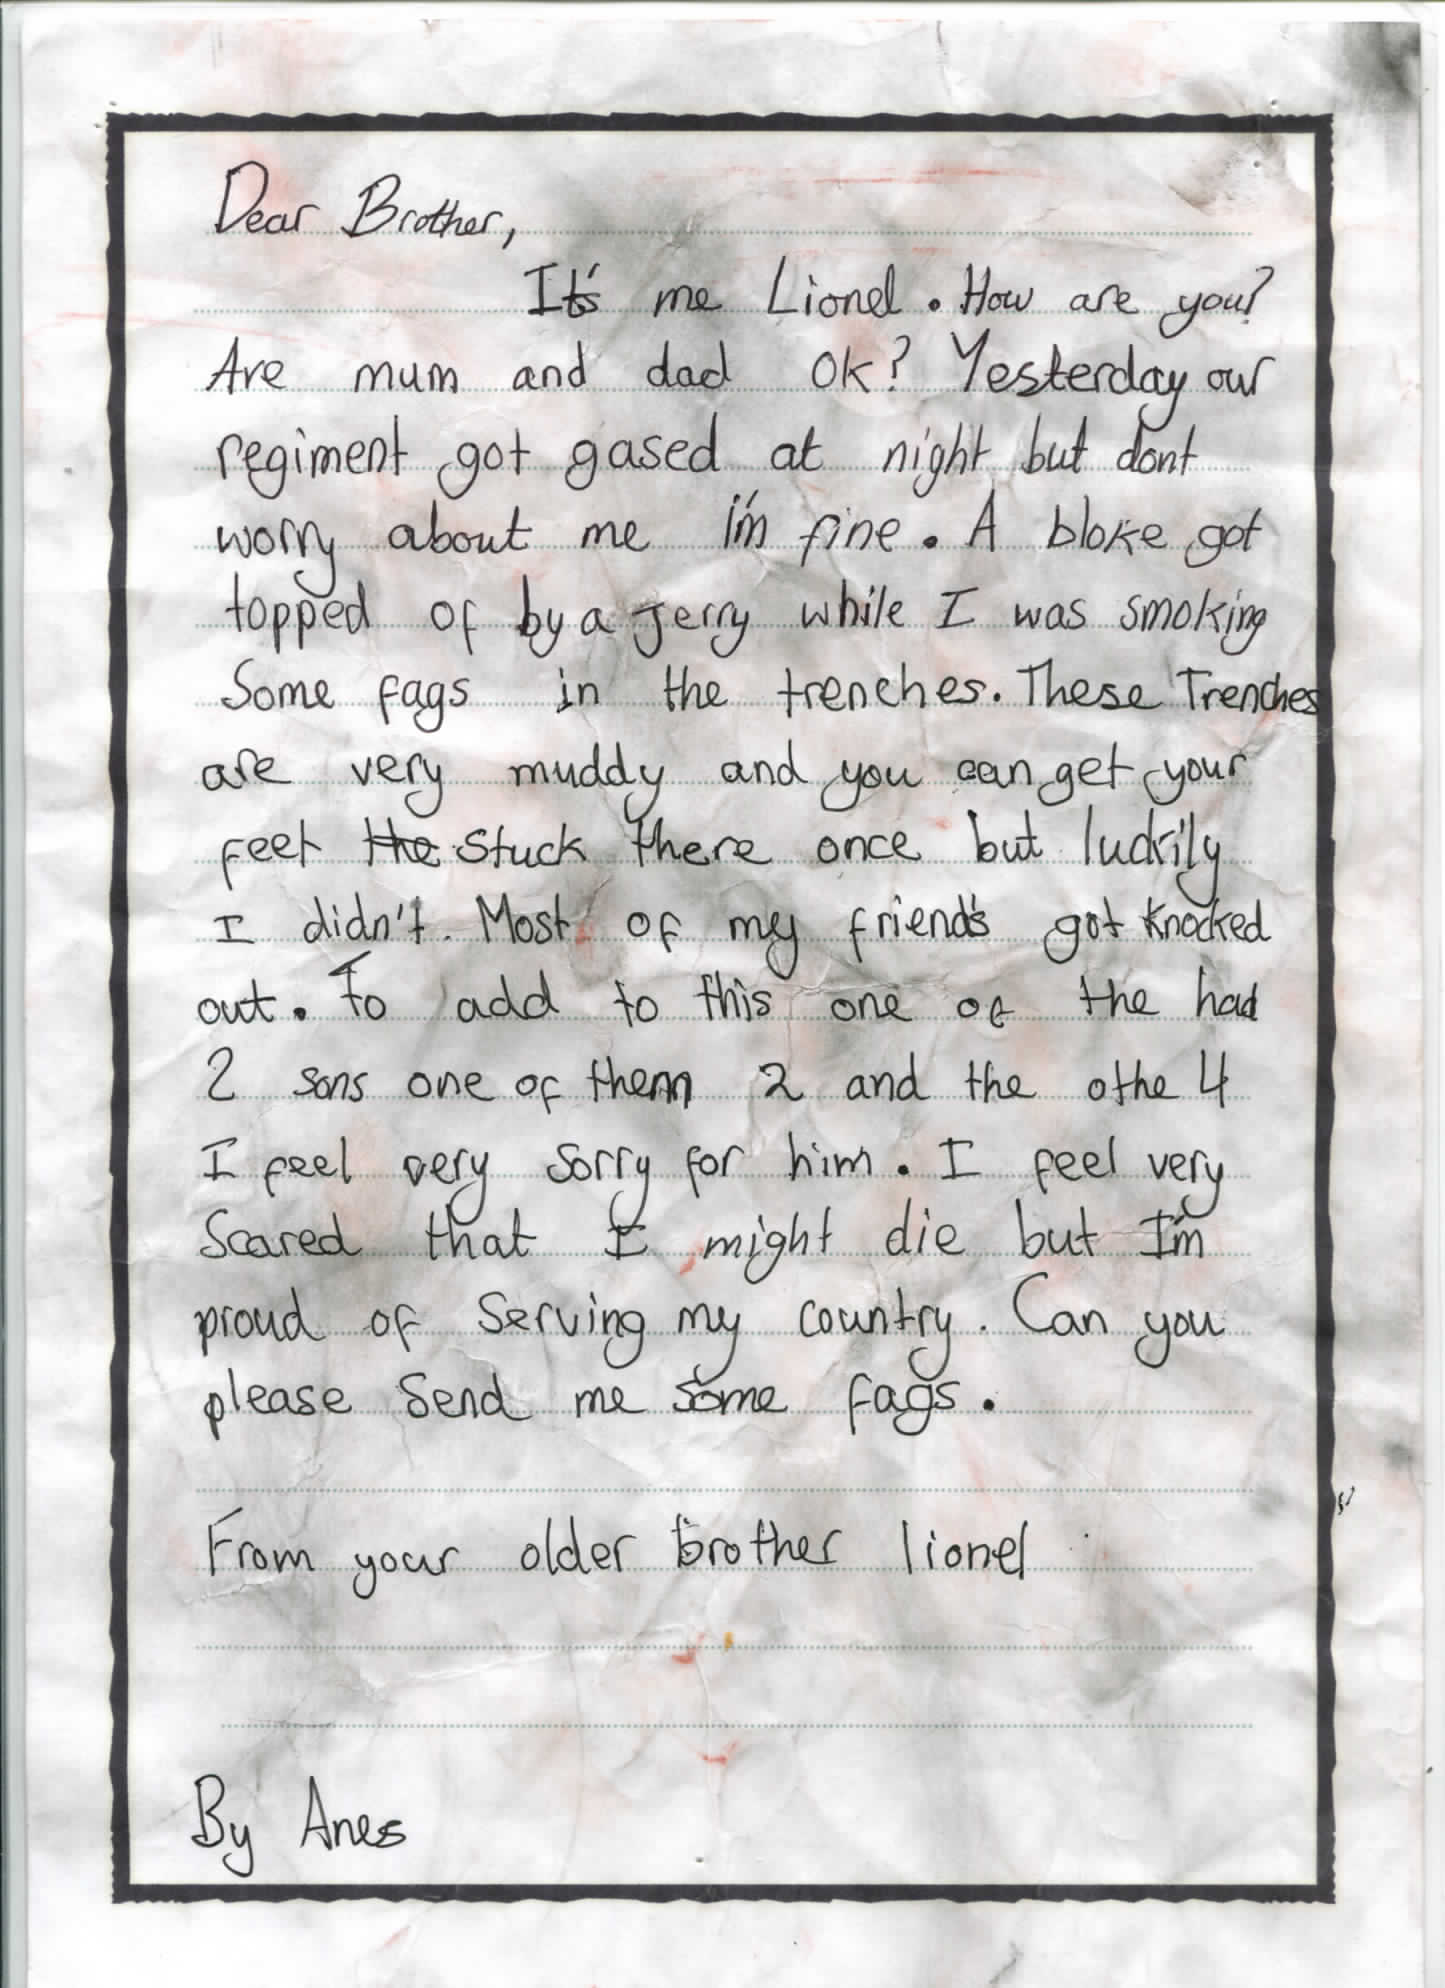 Dear Brother,
It's me Lionel. How are you?
Are mum and dad ok? Yesterday our
regiment got gased at night but dont
worry about me i'm fine. A bloke got
topped of by a Jerry while I was smoking
Some fags in the trenches. These Trenches
are very muddy and you can get your
feet the stuck there once but luckily
I didn't. Most of my friend's got knocked
out. To add to this one of the had
2 sons one of them 2 and the othe 4
I feel very sorry for him. I feel very
Scared that I might die but I'm
proud of Serving my country. Can you
please Send me Some fags.
From your older brother lionel
By Anes